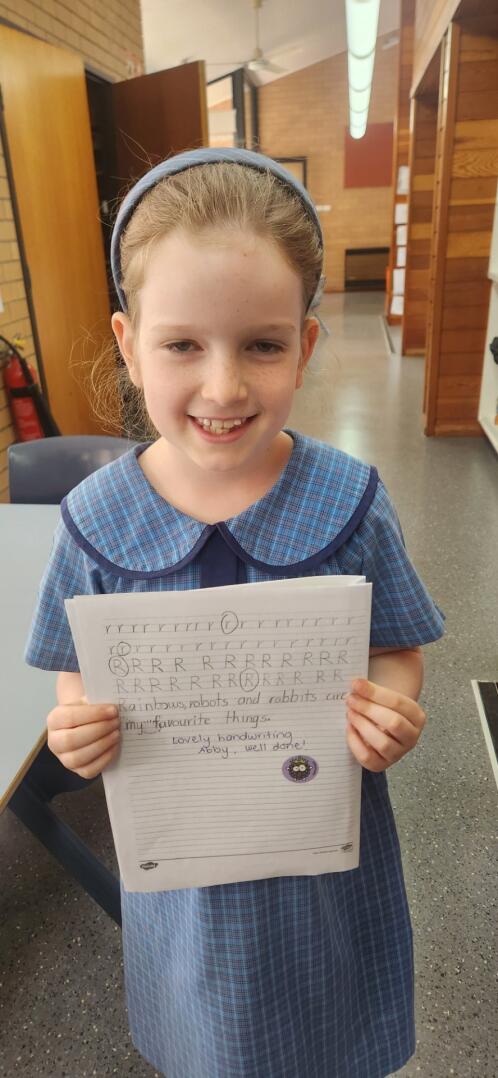 r r r r r r r r r r r r r r r r r r r
r r r r r r r r r r r r r r r r r r
R R R R R R R R R R R R R
R R R R R R R R R R R R R
Rainbows, robots and rabbits are
my favourite things.
Lovely handwriting
Abby, well done!